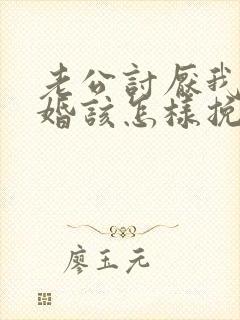 老公討厭我
婚該怎樣挽
廖玉元